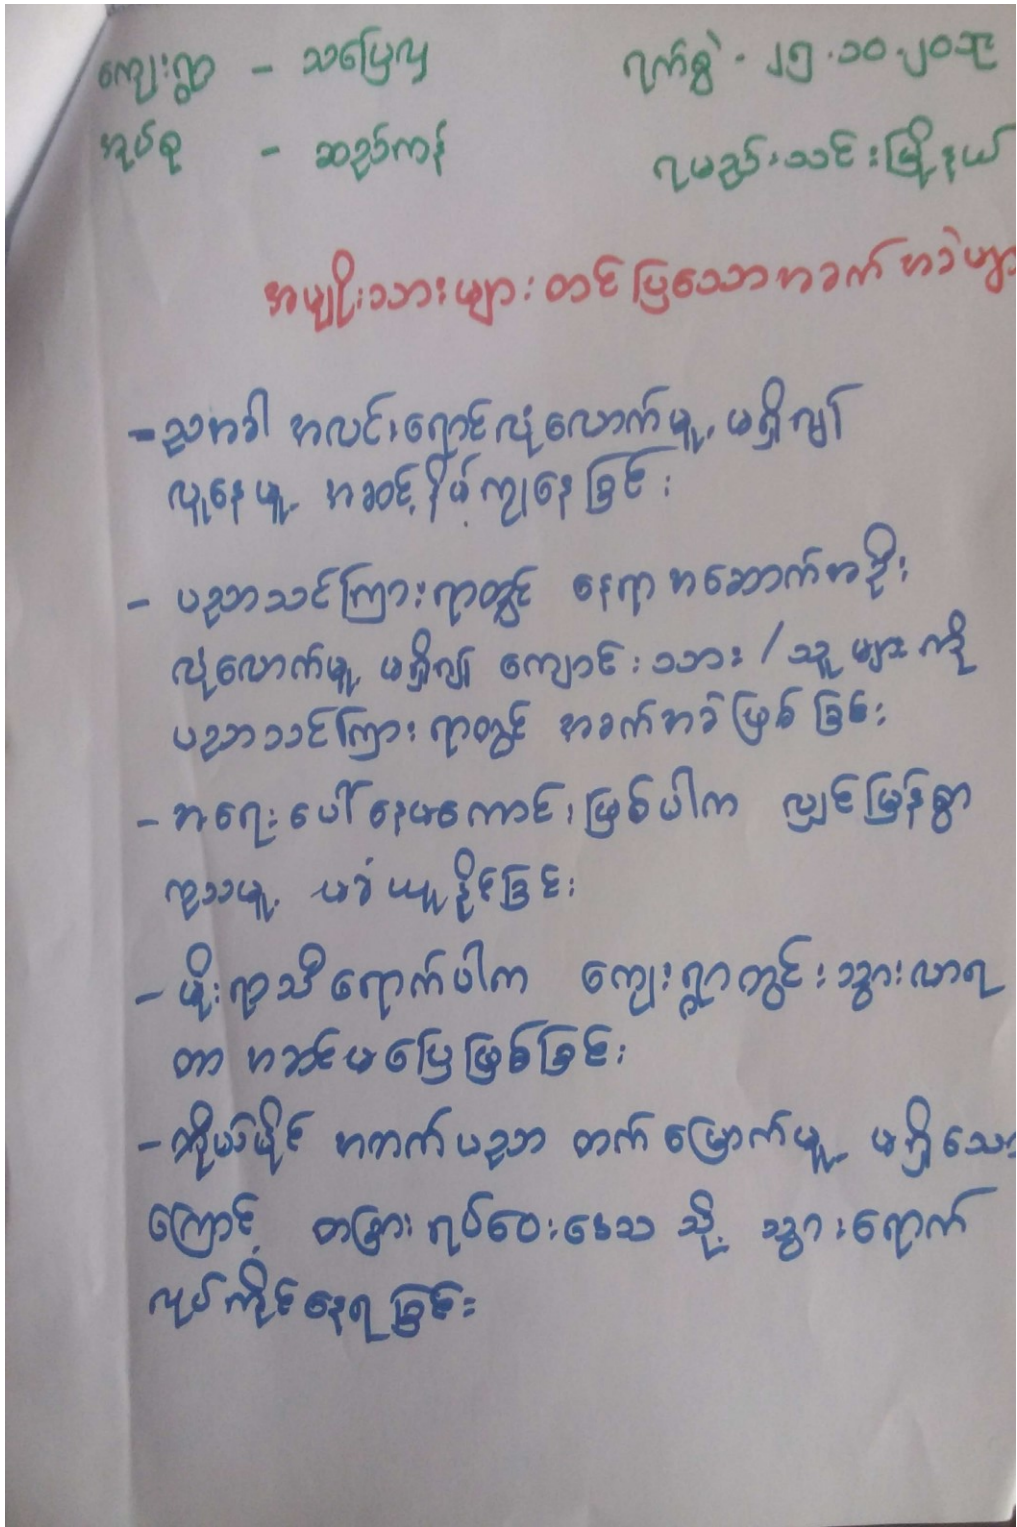 ကျေးရွာ - သပြေလှ ရက်စွဲ - ၂၅.၁၀.၂၀၁၄
အုပ်စု - ဆည်ကန် ရမည်းသင်းမြို့နယ်
အမျိုးသားများတင်ပြသောအခက်အခဲများ
- ညအခါ အလင်းရောင်လုံလောက်မှု မရှိလျှင်
လူနေမှု အဆင့်နိမ့်ကျနေခြင်း
- ပညာသင်ကြားရာတွင် နေရာအဆောက်အဦး
လုံလောက်မှု မရှိလျှင် ကျောင်းသား/သူများကို
ပညာသင်ကြားရာတွင် အခက်အခဲဖြစ်ခြင်း
- အရေးပေါ်နေမကောင်းဖြစ်ပါက လျှင်မြန်စွာ
ကုသမှု မခံယူနိုင်ခြင်း
- မိုးရာသီရောက်ပါက ကျေးရွာတွင်းသွားလာရ
တာ အဆင်မပြေဖြစ်ခြင်း
- ကိုယ်ပိုင် အတက်ပညာ တက်မြောက်မှု မရှိသော
ကြောင့် တခြားရပ်ဝေးဒေသ သို့ သွားရောက်
လုပ်ကိုင်နေရခြင်း